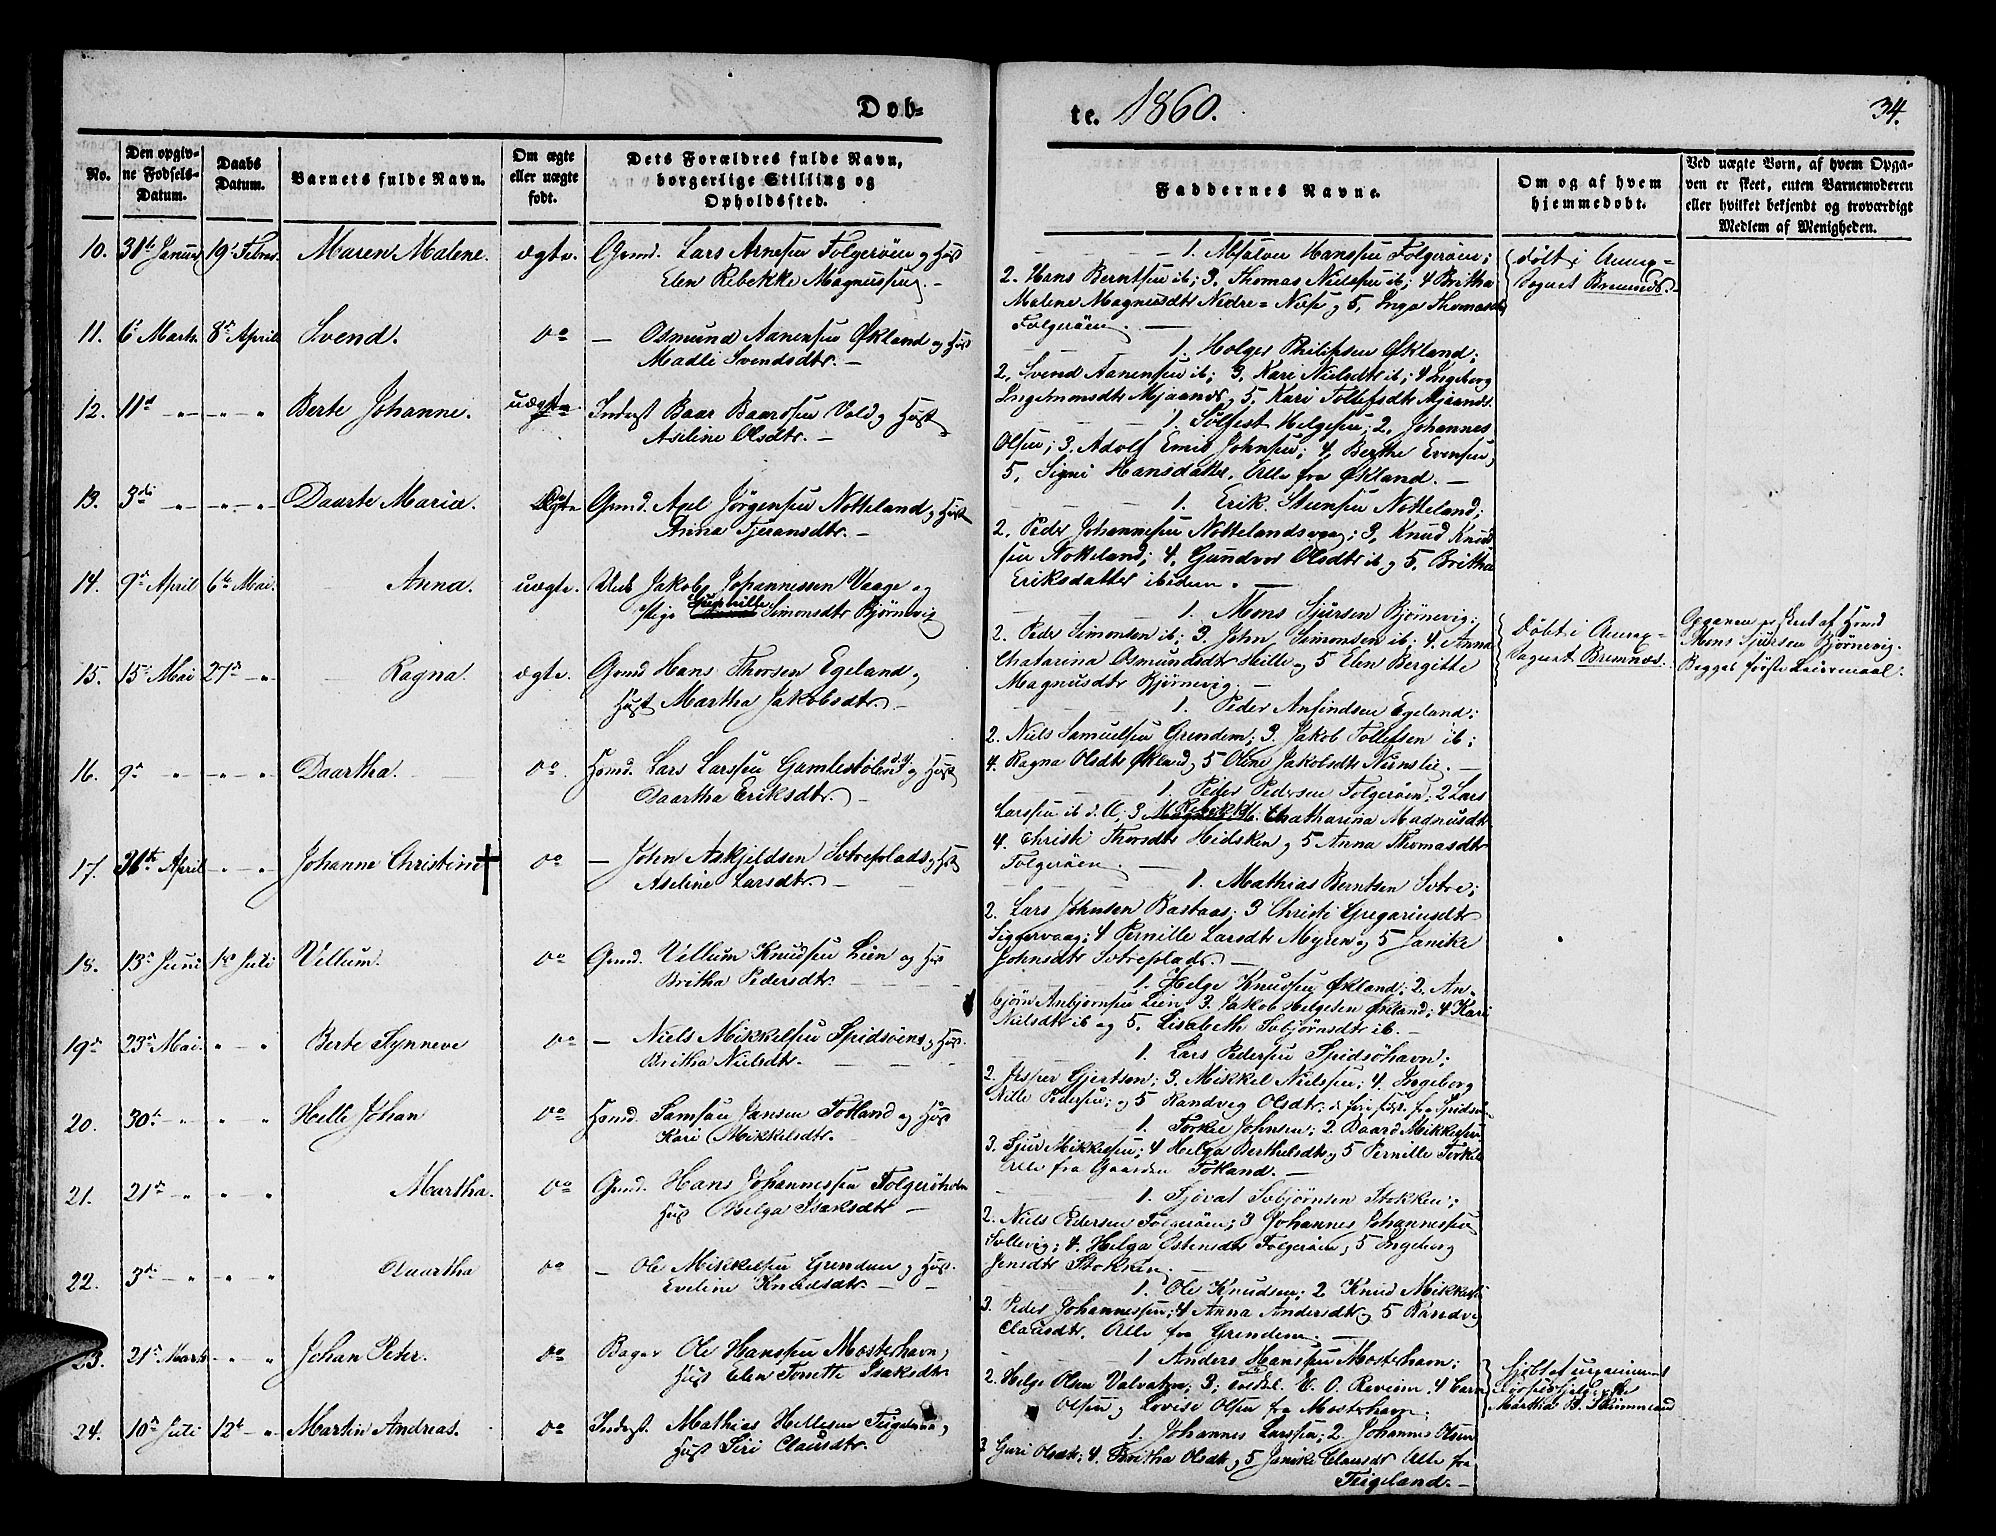 Døb-
te. 1860.
34.
No.
Den opgiv-
ne Fødsels-
Datum.
Daabs
Datum.
Barnets fulde Navn.
Om ægte
eller uægte
født.
Dets Forældres fulde Navn,
borgerlige Stilling og
Opholdssted.
Faddernes Navne.
Om og af hvem
hjemmedøbt.
Ved uægte Børn, af hvem Opga-
ven er skeet, enten Barnemoderen
eller hvilket bekjendt og troværdigt
Medlem af Menigheden.
10. 31te Januar 19de Febr. Maren Malene. ægte. Gmd. Lars Arnesen Folgerøen og Hust
Elen Rebekke Magnussen. —
1. Absalon Hanssen Folgerøen;
2. Hans Berntsen ib; 3. Thomas Nielssen ib; 4 Britha
Malene Magnusdtr Nedre-Næse og 5, Inga Thomasdtr
Folgerøen. —
døbt i Annex-
Sognet Bremnæs.
11. 6te Marts. 8de April Svend. do — Osmund Aanensen Økland og Hust
Madli Svendsdtr. —
1. Holger Philipsen Økland;
2, Svend Aanensen ib; 3, Kari Nielsdtr ib; 4 Ingeborg
Ingemonsdtr Mjaanæs og 5, Kari Tollefsdtr Mjaanæs.
12. 11te " " Berte Johanne. uægte Inderst Baar Baardsen Vold og Hust
Aseline Olsdtr. —
1, Solfest Helgesen; 2, Johannes
Olsen; 3, Adolf Emil Johnsen; 4, Berthe Evensen,
5, Signi Hansdatter, Alle fra Økland. —
13. 3die " " Daarte Maria. Ægte Gmd. Axel Jørgensen Notteland og Hust
Anna Tjeransdtr. —
1. Erik Steensen Notteland;
2, Peder Johannesen Nottelandsvaag; 3, Knud Knud
sen Nokeland; 4, Gundvor Olsdtr ib og 5, Britha
Eriksdatter ibidem. —
14. 9de April 6te Mai. Anna. uægte. Unk Jakob Johannessen Vaage og
Pige Gunnille Simonsdtr Bjørnevig
1. Mons Sjursen Bjørnevig;
2. Peder Simonsen ib; 3. John Simonsen ib; 4. Anna
Chatarina Osmundsdtr Hille og 5 Elen Bergitte
Magnusdtr Bjørnevig. —
Døbt i Annex-
Sognet Bremnæs.
Opgaven er skeet af Gmd
Mons Sjursen Bjørnevig.
Begges første Leiermaal.
15. 15de Mai 27de " Ragna. ægte. Gmd Hans Thorsen Egeland,
Hust Martha Jakobsdtr. —
1. Peder Anfindsen Egeland;
2. Niels Samuelsen Grendem; 3. Jakob Tollefsen ib;
4. Ragna Olsdtr Økland og 5 Oline Jakobsdtr Nernslie. —
16. 9de " " Daartha. do. Hsmd. Lars Larssen Gamlestølen og Hust
Daartha Eriksdtr. —
1. Peder Pedersen Folgerøen; 2 Lars
Larssen ib d. Æ; 3 Rebekke Chatharina Magnusdtr
4. Christi Thorsdtr Hidsken og 5 Anna Thomasdtr
Folgerøen. —
17. 31te April " " Johanne Christine † do — John Askjeldsen Sotreplads og Hust
Aseline Larsdtr. —
1. Mathias Berntsen Sotre;
2. Lars Johnsen Bastaas; 3 Christi Gregariusdtr
Siggervaag; 4 Pernille Larsdtr Myren og 5 Janike
Johnsdtr Sotreplads. —
18. 13de Juni 1ste Juli Villum. do Gmd. Villum Knudsen Lien og Hus
Britha Pedersdtr.
1. Helge Knudsen Økland; 2. An-
bjørn Anbjornsen Lien; 3. Jakob Helgesen Økland; 4 Kari
Nielsdtr ib og 5. Lisabeth Sobjørnsdtr ib. —
19de 23de Mai. " " Berte Synneve do — Niels Mikkelsen Spidsøen og Hus.
Britha Nielsdtr.
1. Lars Pedersen Spidsøhavn;
2. Jesper Gjertsen; 3. Mikkel Nielssen; 4. Ingeborg
Nille Pedersen; og 5 Randveg Olsdtr; de fire sidst. fra Spidsøen
20. 30te " " Helle Johan do Hsmd. Samson Jansen Totland og Hust
Kari Mikkelsdtr. —
1. Torkel Johnsen; 2. Baard Mikkelsen.
3. Sjur Mikkelsen; 4 Helga Berthelsdtr og 5 Pernille Torkels
Alle fra Gaarden Totland. —
21. 21de " " Martha. do Gmd. Hans Johannessen Folgerøholm
Hus Helga Isaksdtr —
1. Sjovat Sobjørnsen Stokken;
2. Niels Pedersen Folgerøen; 3 Johannes Johannesen
Sollevig; 4. Helga Østensdtr Folgerøen, 5 Ingeborg
Jensdtr Stokken. —
22. 3die " " Daartha do — Ole Mikkelsen Grendem og Hust.
Eveline Knudsdtr. —
1. Ole Knudsen; 2 Knud Mikkelsen
3. Peder Johannessen; 4 Anna Andersdtr og 5 Randveg
Clausdtr. Alle fra Grendem. —
23. 21de Marts " " Johan Peter. do Bager Ole Hanssen Mosterhavn,
Hust Elen Tonette Isaksdtr
1 Anders Hanssen Mosterhavn;
2. Helge Olsen Valvatne; 3; Toldbl. E. O. Revisen 4 Caren
Olsen og Lovise Olsen fra Mosterhavn;
24. 10de Juli 12te " Martin Andreas. do Inderst. Mathias Hellesen Teigeland,
Hust Siri Clausdtr.
1. Johannes Larssen; 2. Johannes Olsen
3 Guri Olsdtr; 4. Britha Olsdtr og 5 Janike Clausdtr Alle fra
Teigeland. —